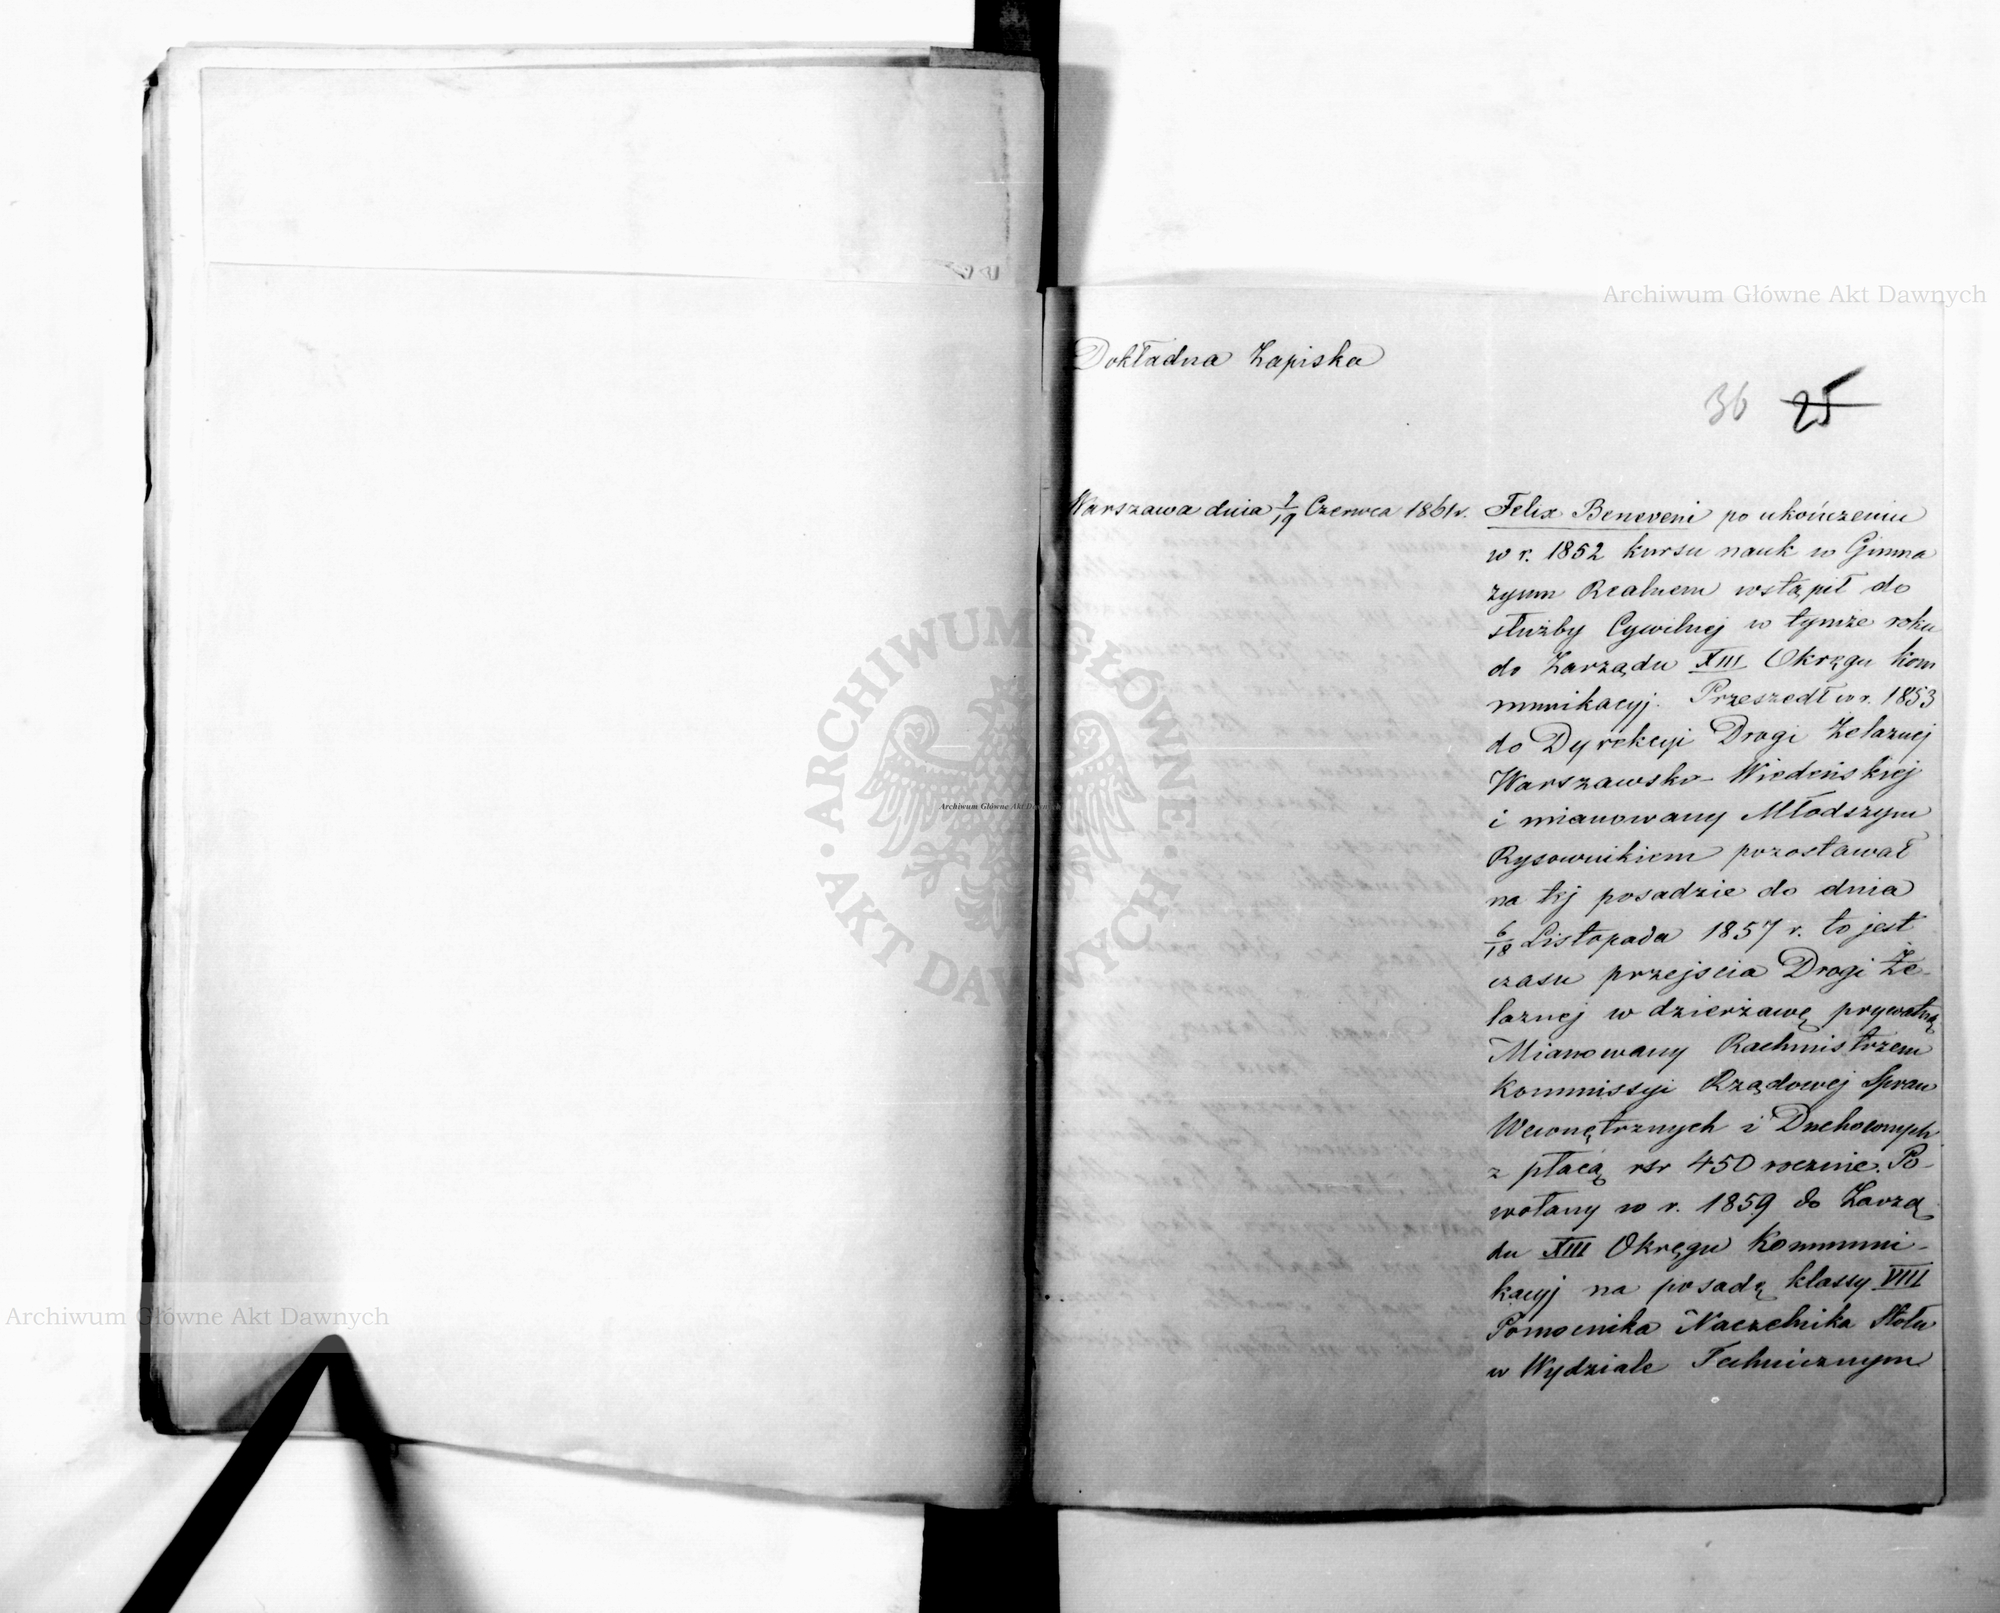 Dokładna Zapiska
36 25
Warszawa dnia 7/19 Czerwca 1861 r.
Felix Beneveni po ukończeniu
w r. 1852 kursu nauk w Gimna
zyum Realnem wstąpił do
służby Cywilnej w tymże roku
do Zarządu XIII Okręgu Kom
munikacyj. Przeszedł w r. 1853
do Dyrekcyi Drogi Żelaznej
Warszawsko-Wiedeńskiej
i mianowany Młodszym
Rysownikiem pozostawał
na tej posadzie do dnia
6/18 Listopada 1857 r. to jest
czasu przejscia Drogi Że-
laznej w dzierżawę prywatną
Mianowany Rachmistrzem
Kommissyi Rządowej Spraw
Wewnętrznych i Duchownych
z płacą rsr 450 rocznie. Po-
wołany w r. 1859 do Zarzą
du XIII Okręgu Kommuni-
kacyj na posadę klassy VIII
Pomocnika Naczelnika Stołu
w Wydziale Technicznym
Archiwum Główne Akt Dawnych
Archiwum Główne Akt Dawnych
Archiwum Główne Akt Dawnych
ARCHIWUM GŁÓWNE AKT DAWNYCH